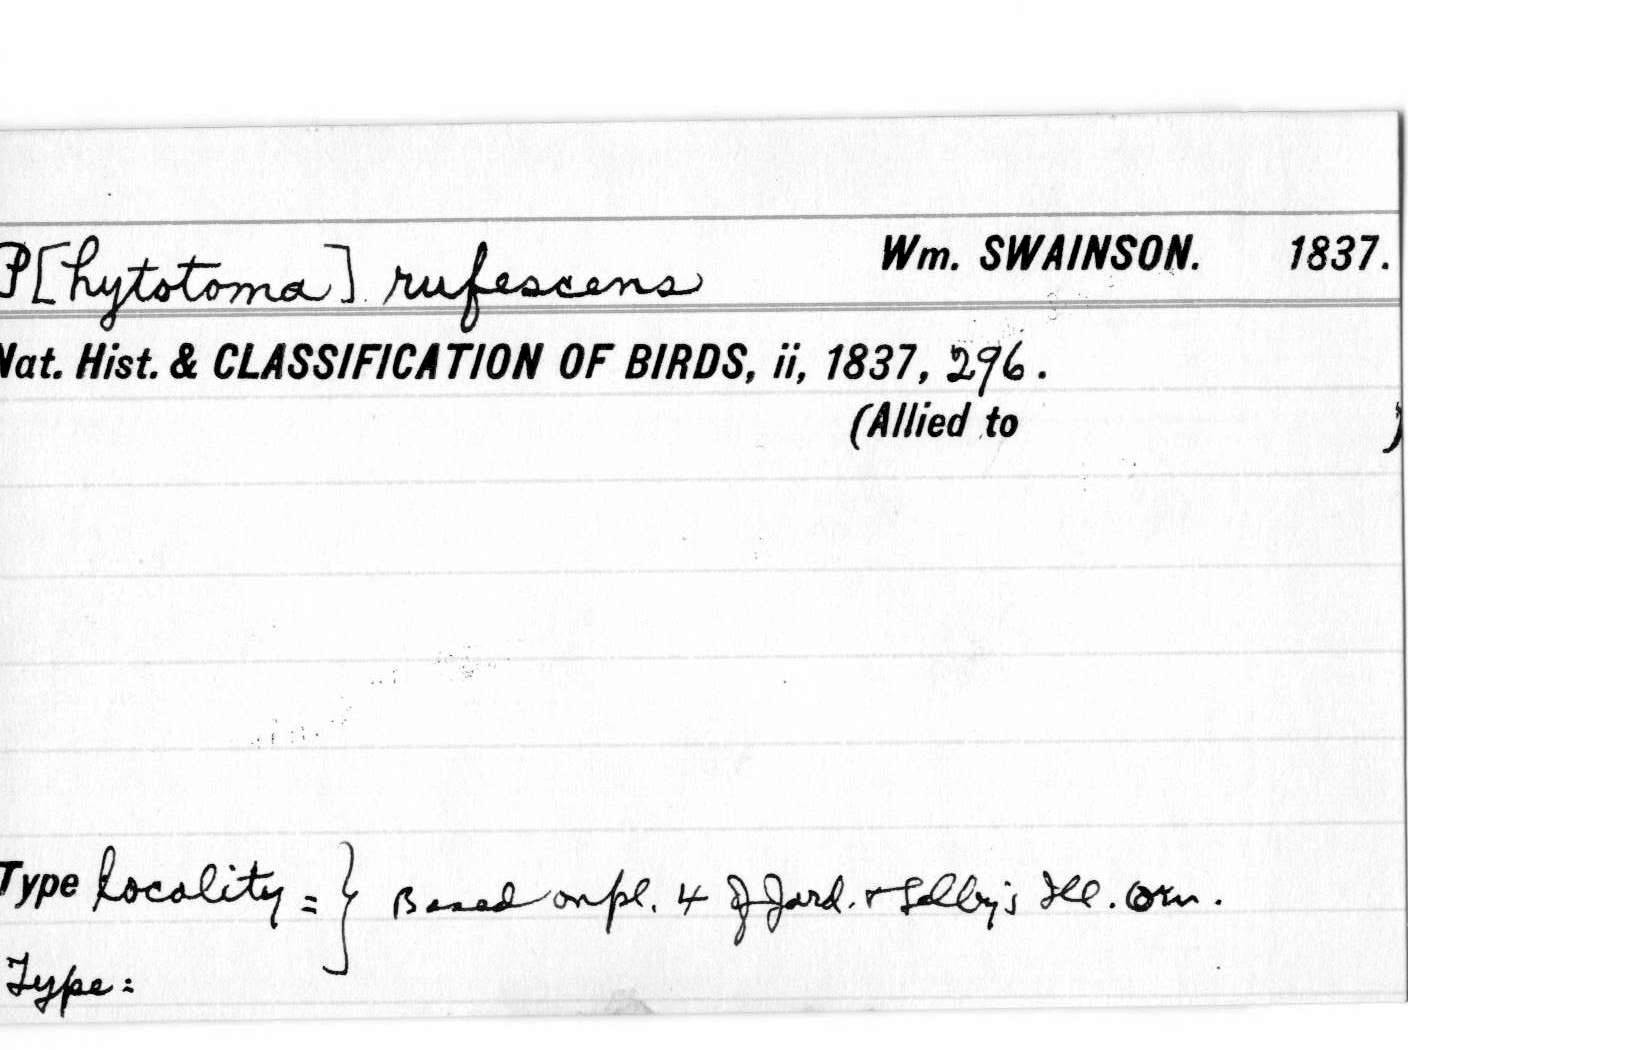 P[hytotoma] rufescens Wm. SWAINSON. 1837.
Nat. Hist. & CLASSIFICATION OF BIRDS, ii, 1837, 296.
(Allied to )
Type locality = } Based on pl. 4 of Jard. & Selby's Ill. Orn.
Type: